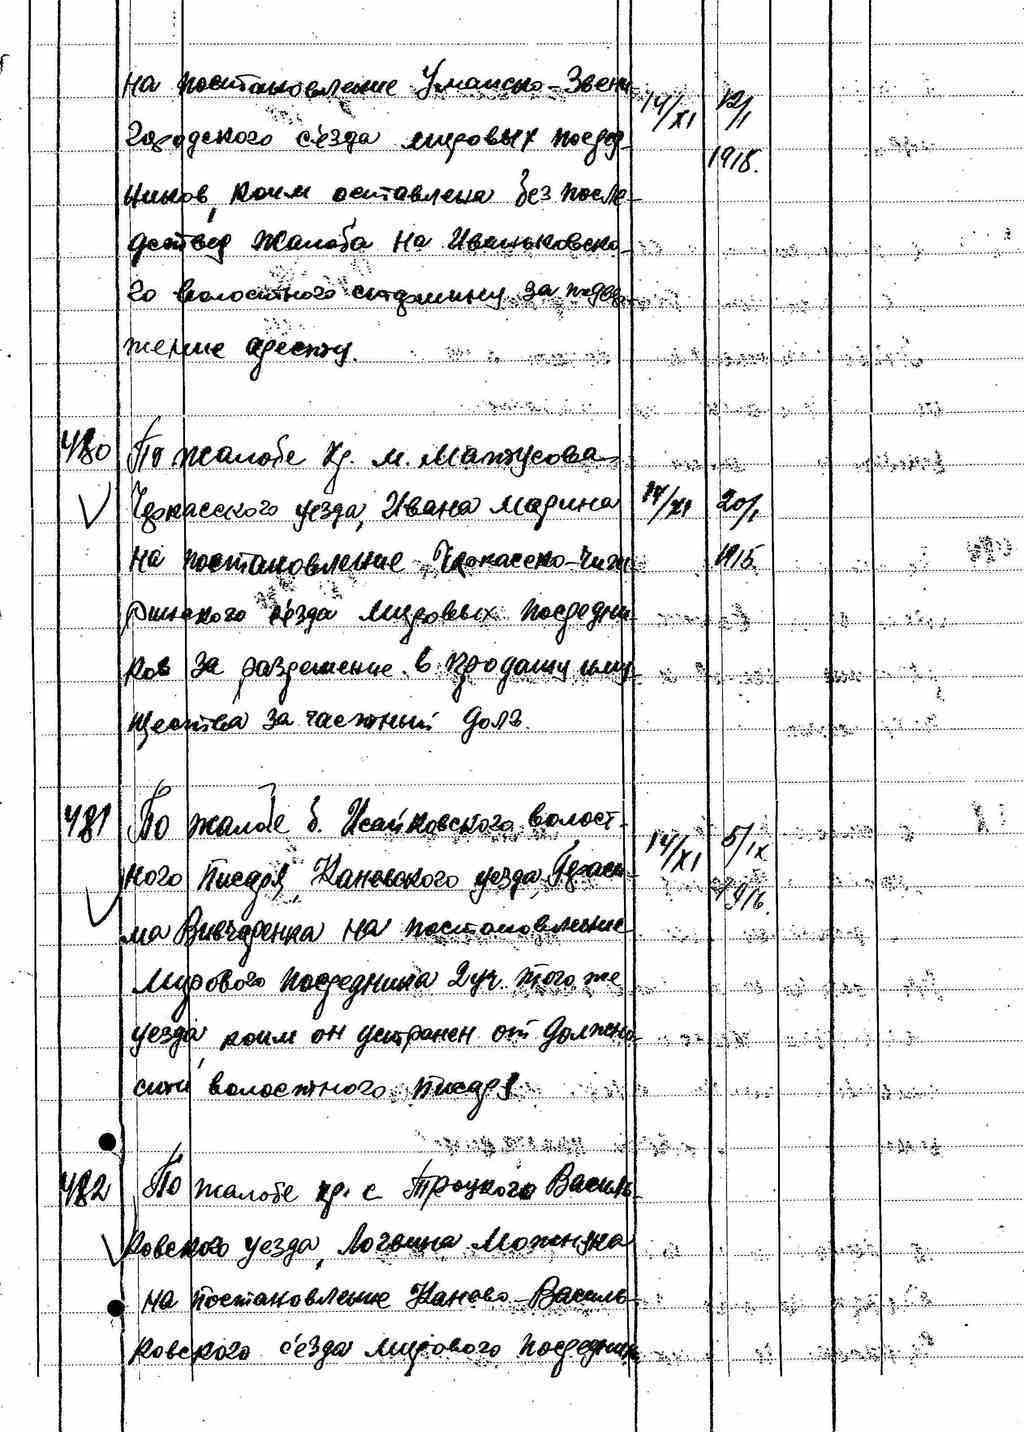 на постановление Уманско-Звени-
городского с'езда мировых посред-
ников, коим оставлена без после-
дствия жалоба на Иваньковско-
го волостного старшину за подвер-
жение аресту.
14/XI 12/I
1915.
480 По жалобе кр. м. Мактусова
Черкасского уезда, Ивана Марина 14/XI 20/I
на постановление Черкасско-Чиги- 1915
ринского с'езда мировых посредни-
ков за разрешение в продажу иму-
щества за частный долг.
481 По жалобе б. Исайковского волост-
ного писаря, Каневского уезда, Гераси- 14/XI 5/IX
ма Вивчаренка на постановление 1916.
Мирового посредника 2 уч. того же
уезда, коим он устранен от должно-
сти волостного писаря
482 По жалобе кр. с Троцкого Василь-
ковского уезда, Логвина Можнука
на постановление Канево-Василь-
ковского с'езда мирового посредник